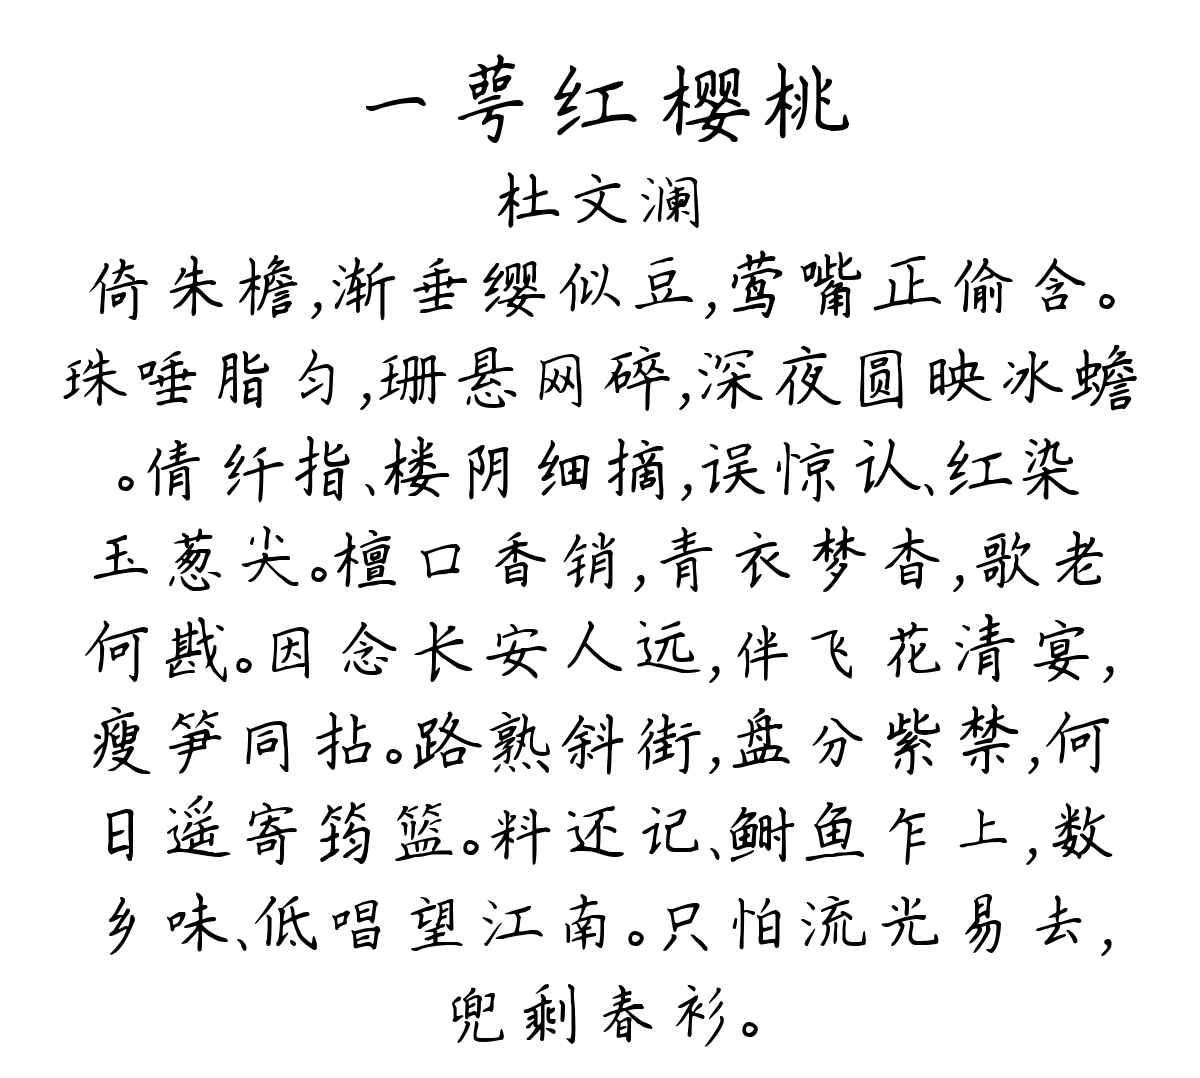 一萼红樱桃
杜文澜
倚朱檐,渐垂缨似豆,莺嘴正偷含。
珠唾脂匀,珊悬网碎,深夜圆映冰蟾
。倩纤指、楼阴细摘,误惊认、红染
玉葱尖。檀口香销,青衣梦杳,歌老
何戡。因念长安人远,伴飞花清宴,
瘦笋同拈。路熟斜街,盘分紫禁,何
日遥寄筠篮。料还记、鲥鱼乍上,数
乡味、低唱望江南。只怕流光易去,
兜剩春衫。